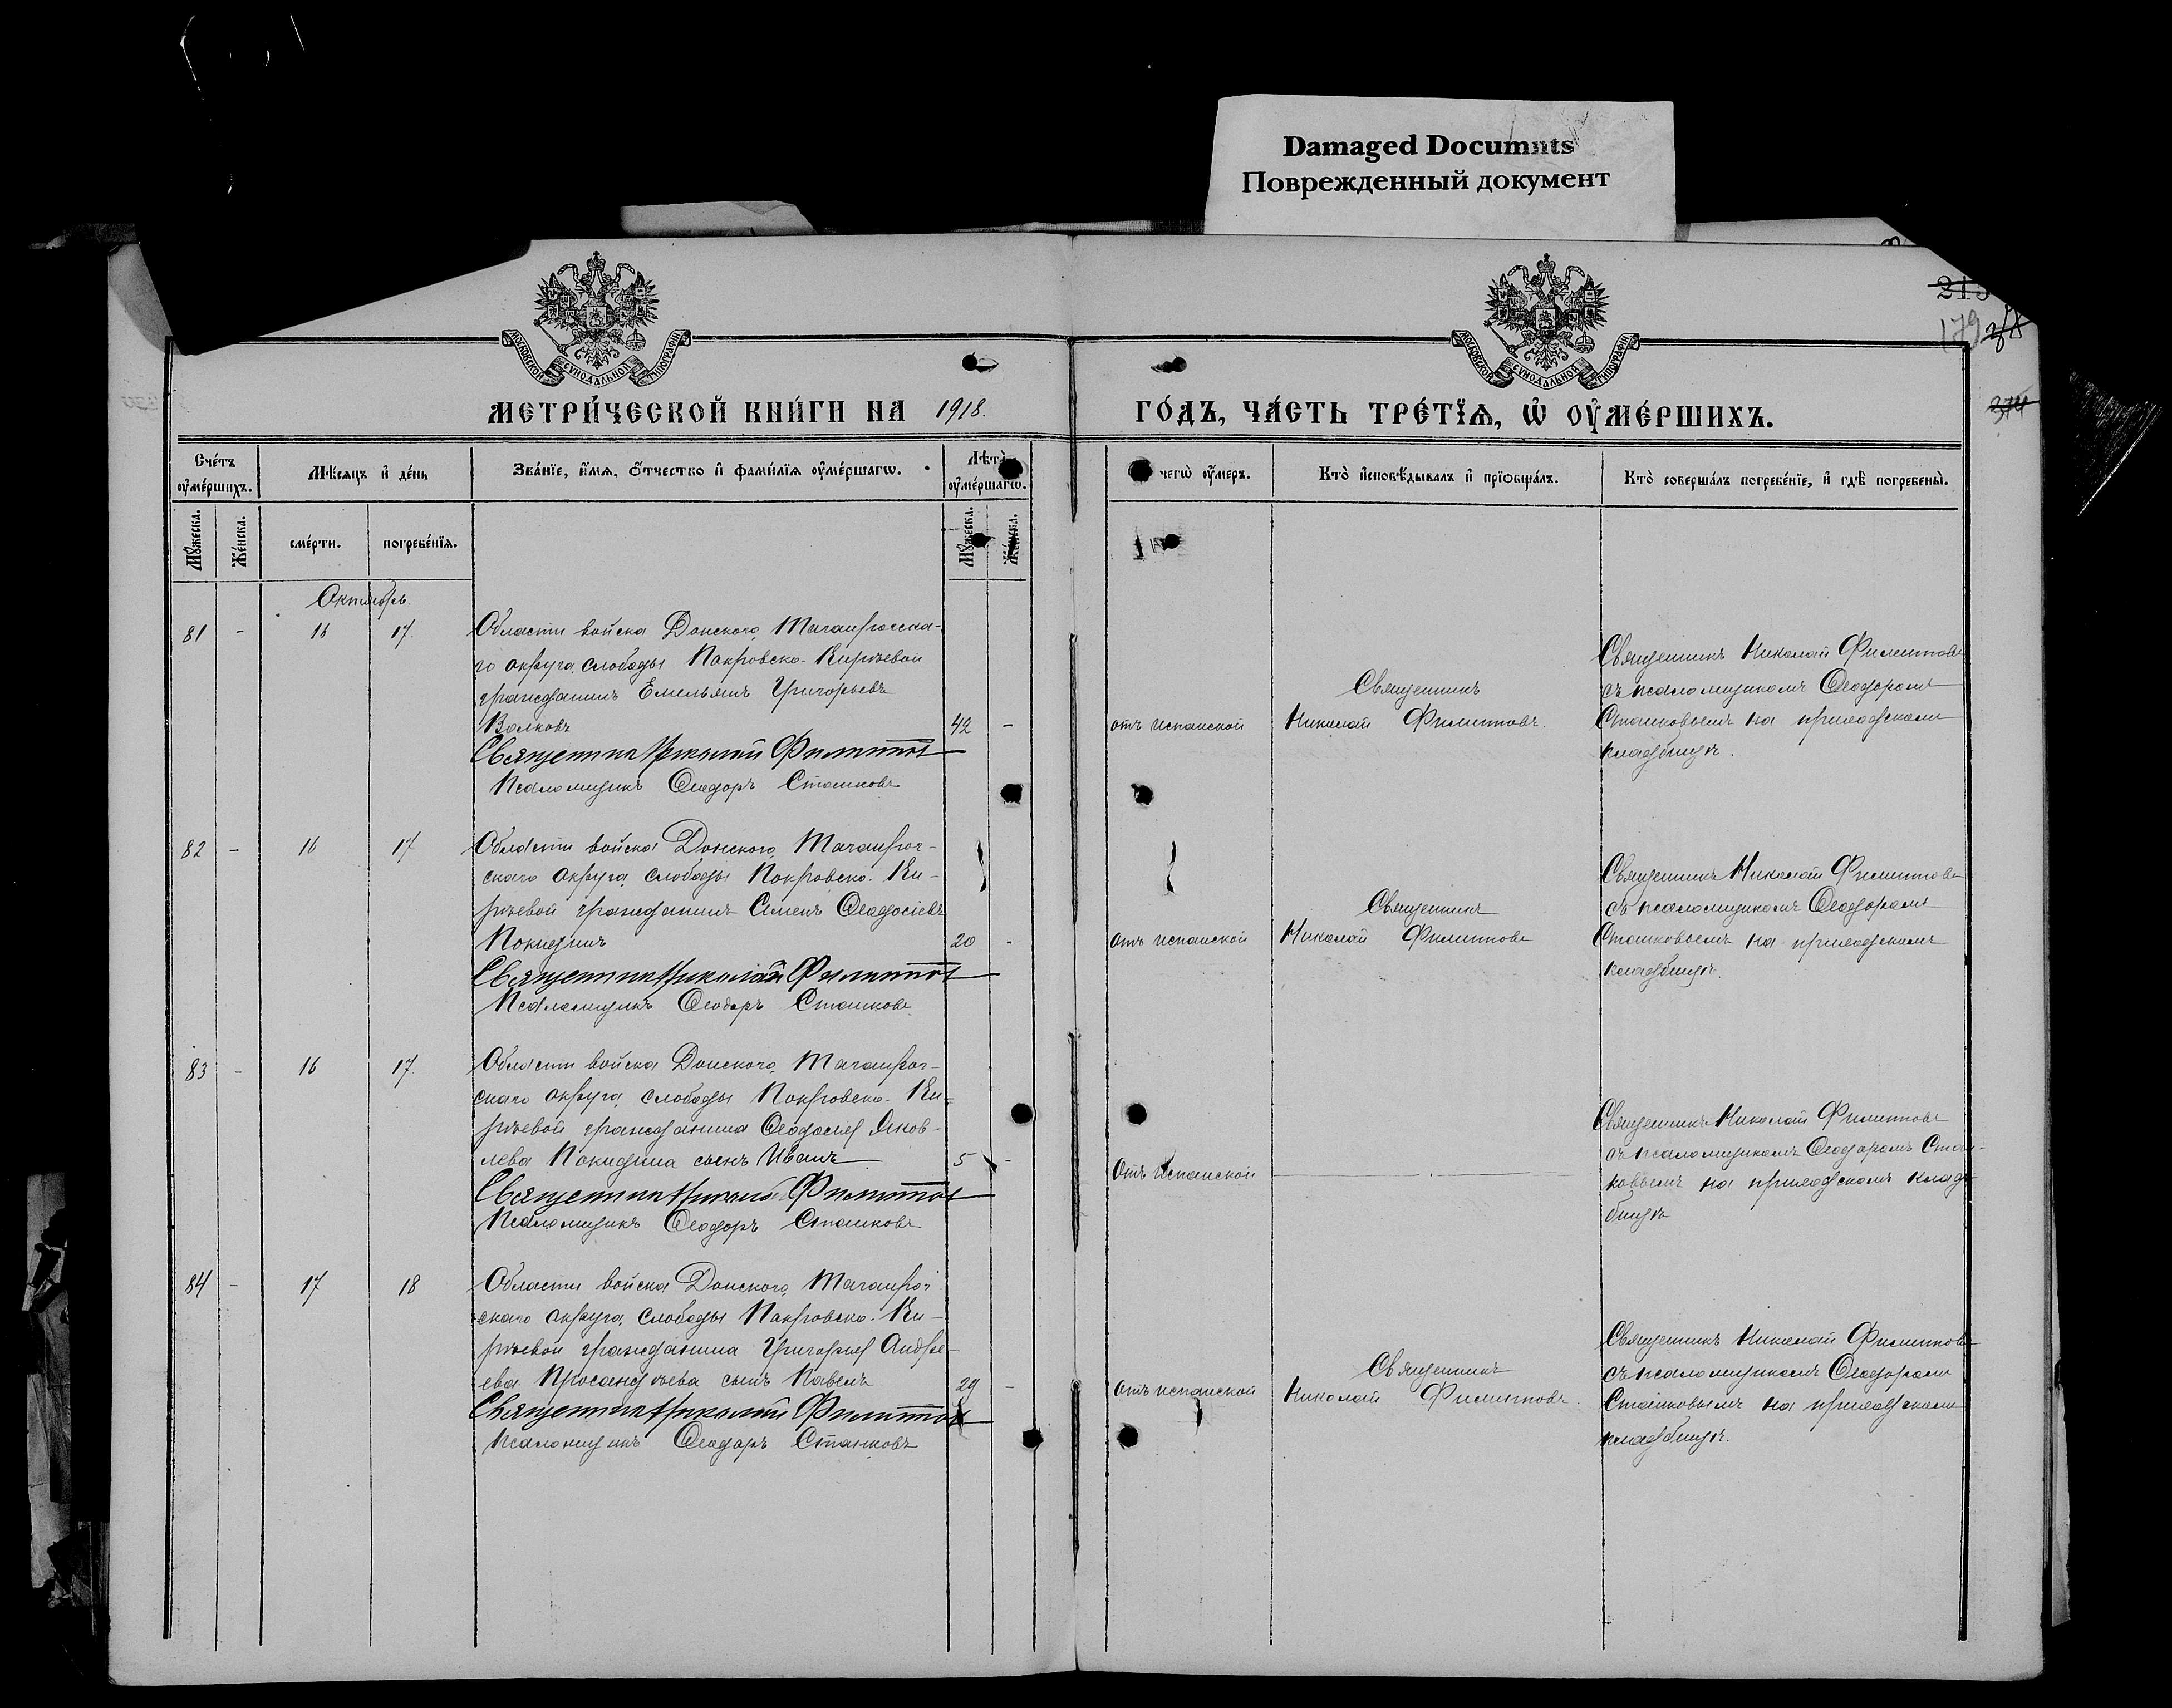 Damaged Documnts
Поврежденный документ
МОСКОВСКОЙ СѴНОДАЛЬНОЙ ТИПОГРАФІИ
МОСКОВСКОЙ СѴНОДАЛЬНОЙ ТИПОГРАФІИ
213
179
МЕТРИ́ЧЕСКОЙ КНИ́ГИ НА 1918. ГО́ДЪ, ЧА́СТЬ ТРЕ́ТЇѦ, Ѡ҆ ОУ҆МЕ́РШИХЪ.
Сче́тъ оу҆ме́ршихъ.
Мѣ́сяцъ и҆ де́нь
Зва́нїе, и҆́мѧ, ѻ҆́тчество и҆ фами́лїѧ оу҆ме́ршагѡ.
Лѣ́та оу҆ме́ршагѡ.
чегѡ̀ оу҆́меръ.
Кто̀ и҆сповѣ́дывалъ и҆ прїѡбща́лъ.
Кто̀ соверша́лъ погребе́нїе, и҆ гдѣ̀ погребены̀.
Мꙋ́жеска.
Же́нска.
сме́рти.
погребе́нїѧ.
Мꙋ́жеска.
Же́нска.
Октябрь
81 - 16 17.
Области войска Донского, Таганрогска-
го округа, слободы Покровско-Киреевой
гражданинъ Емельянъ Григорьевъ
Волковъ 42 -
Священникъ Николай Филиппов
Псаломщикъ Ѳеодоръ Сташковъ
отъ испанской
Священникъ
Николай Филипповъ.
Священникъ Николай Филипповъ
съ псаломщикомъ Ѳеодоромъ
Сташковымъ на приходскомъ
кладбищѣ.
82 - 16 17
Области войска Донского, Таганрог-
скаго округа, слободы Покровско-Ки-
реевой гражданинъ Симеонъ Ѳеодосіевъ
Покидинъ 20 -
Священникъ Николай Филиппов
Псаломщикъ Ѳеодоръ Сташковъ
отъ испанской
Священникъ
Николай Филипповъ
Священникъ Николай Филипповъ
съ псаломщикомъ Ѳеодоромъ
Сташковымъ на приходскомъ
кладбищѣ.
83 - 16 17.
Области войска Донского, Таганрог-
скаго округа, слободы Покровско-Ки-
реевой гражданина Ѳеодосія Яков-
лева Покидина сынъ Иванъ 5 -
Священникъ Николай Филиппов
Псаломщикъ Ѳеодоръ Сташковъ
Отъ испанской
Священникъ Николай Филипповъ
съ псаломщикомъ Ѳеодоромъ Сташ-
ковымъ на приходскомъ клад-
бищѣ
84 - 17 18
Области войска Донского, Таганрог-
скаго округа, слободы Покровско-Ки-
реевой гражданина Григорія Андре-
ева сынъ Павелъ 29 -
Священникъ Николай Филиппов
Псаломщикъ Ѳеодоръ Сташковъ
Отъ испанской
Священникъ
Николай Филипповъ.
Священникъ Николай Филипповъ
съ псаломщикомъ Ѳеодоромъ
Сташковымъ на приходскомъ
кладбищѣ.